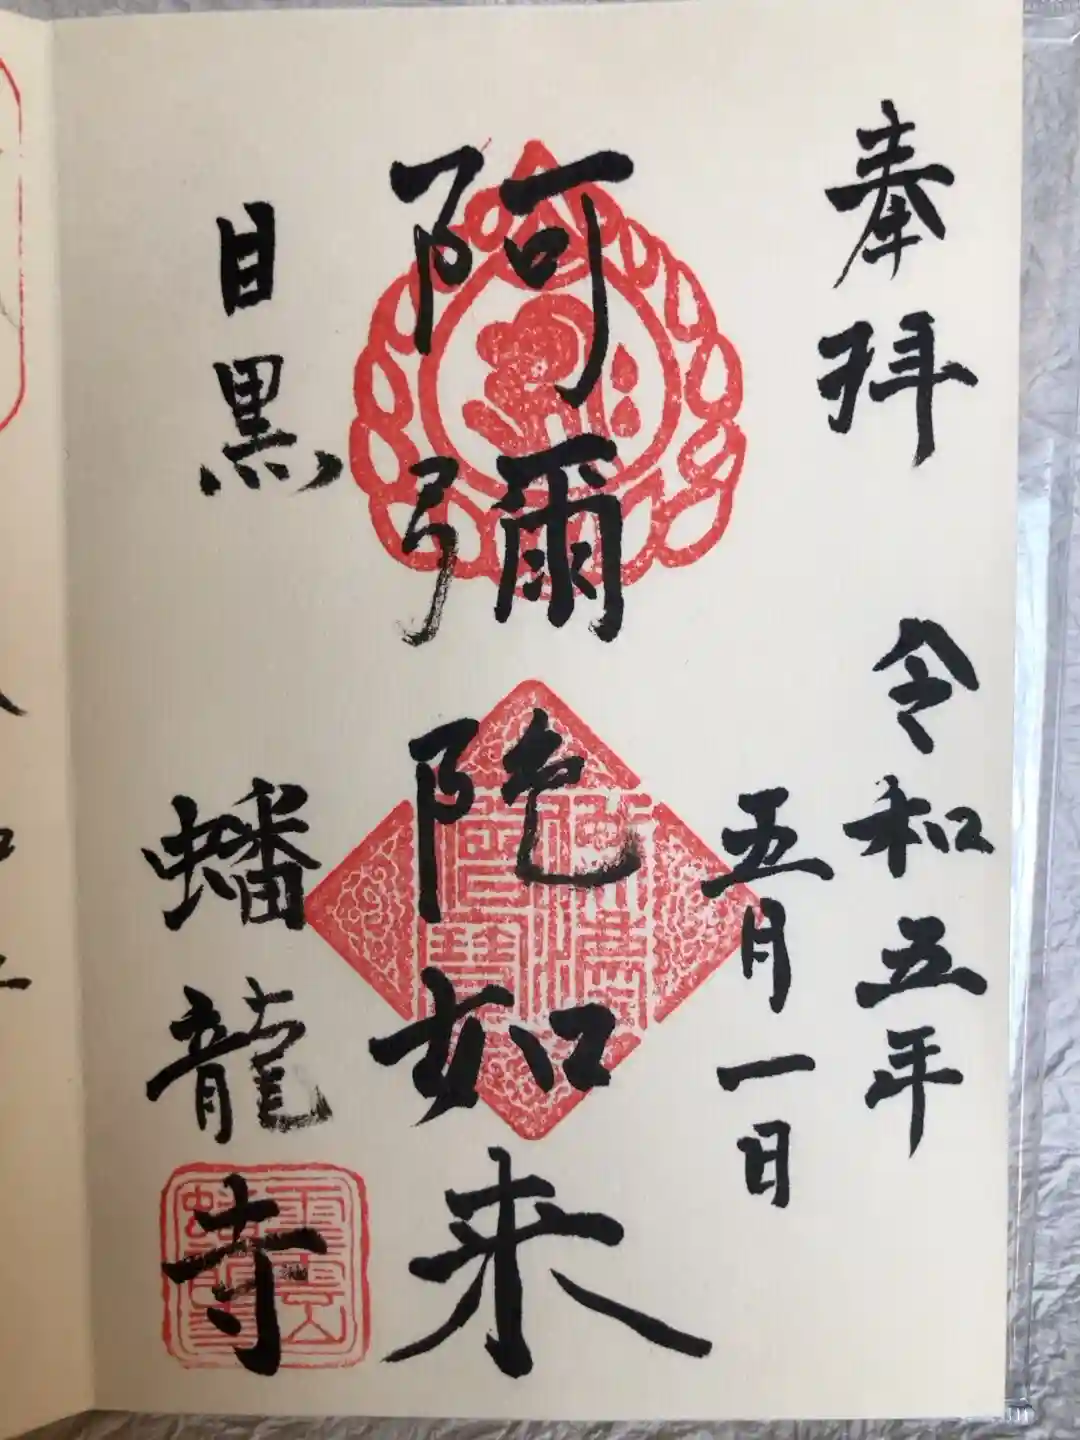 奉拜
令和五年
五月一日
阿彌陀如来
目黒
蟠龍寺